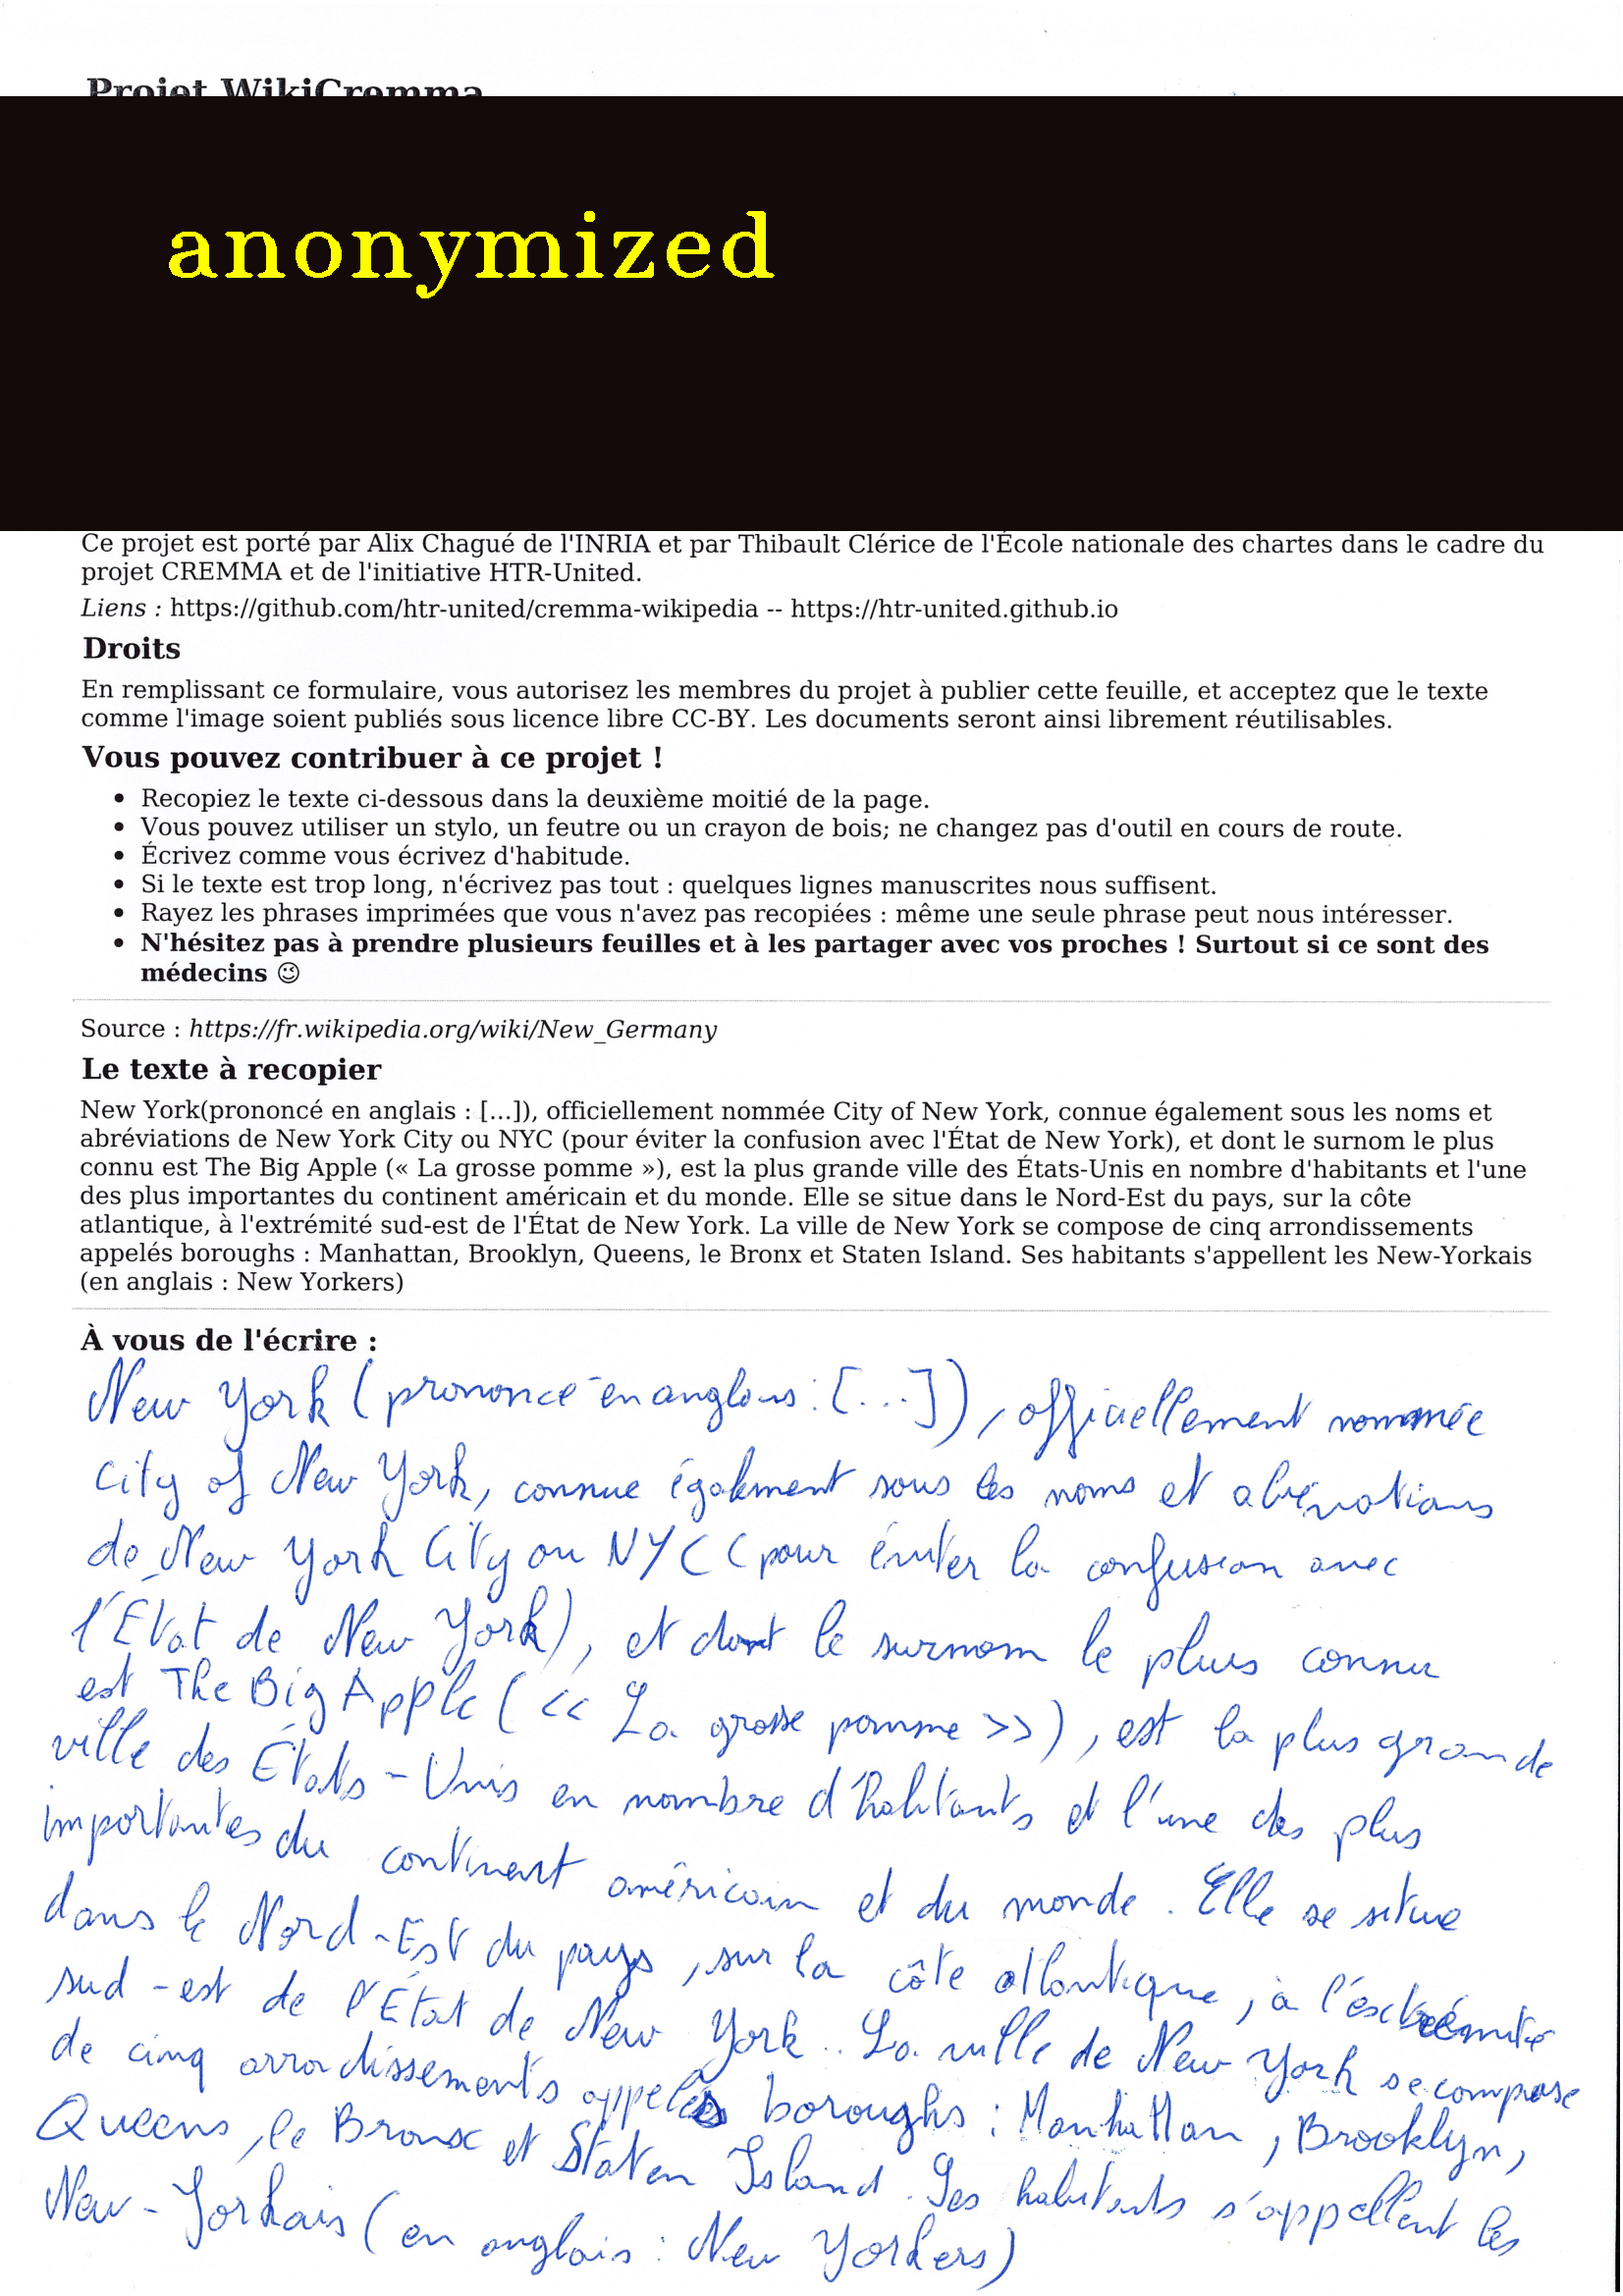 Projet WikiCremma
anonymized
Ce projet est porté par Alix Chagué de l'INRIA et par Thibault Clérice de l'École nationale des chartes dans le cadre du
projet CREMMA et de l'initiative HTR-United.
Liens : https://github.com/htr-united/cremma-wikipedia -- https://htr-united.github.io
Droits
En remplissant ce formulaire, vous autorisez les membres du projet à publier cette feuille, et acceptez que le texte
comme l'image soient publiés sous licence libre CC-BY. Les documents seront ainsi librement réutilisables.
Vous pouvez contribuer à ce projet !
• Recopiez le texte ci-dessous dans la deuxième moitié de la page.
• Vous pouvez utiliser un stylo, un feutre ou un crayon de bois; ne changez pas d'outil en cours de route.
• Écrivez comme vous écrivez d'habitude.
• Si le texte est trop long, n'écrivez pas tout : quelques lignes manuscrites nous suffisent.
• Rayez les phrases imprimées que vous n'avez pas recopiées : même une seule phrase peut nous intéresser.
• N'hésitez pas à prendre plusieurs feuilles et à les partager avec vos proches ! Surtout si ce sont des
médecins 😉
Source : https://fr.wikipedia.org/wiki/New_Germany
Le texte à recopier
New York(prononcé en anglais : [...]), officiellement nommée City of New York, connue également sous les noms et
abréviations de New York City ou NYC (pour éviter la confusion avec l'État de New York), et dont le surnom le plus
connu est The Big Apple (« La grosse pomme »), est la plus grande ville des États-Unis en nombre d'habitants et l'une
des plus importantes du continent américain et du monde. Elle se situe dans le Nord-Est du pays, sur la côte
atlantique, à l'extrémité sud-est de l'État de New York. La ville de New York se compose de cinq arrondissements
appelés boroughs : Manhattan, Brooklyn, Queens, le Bronx et Staten Island. Ses habitants s'appellent les New-Yorkais
(en anglais : New Yorkers)
À vous de l'écrire :
New York (prononcé en anglais : [...]), officiellement nommée
City of New York, connue également sous les noms et abréviations
de New York City ou NYC (pour éviter la confusion avec
l'État de New York), et dont le surnom le plus connu
est The Big Apple (<< La grosse pomme >>), est la plus grande
ville des États-Unis en nombre d'habitants et l'une des plus
importantes du continent américain et du monde. Elle se situe
dans le Nord-Est du pays, sur la côte atlantique, à l'exctréémité
sud-est de l'État de New York. La ville de New York se compose
de cinq arrondissements appelés boroughs : Manhattan, Brooklyn,
Queens, le Bronx et Staten Island. Ses habitants s'appellent les
New-Yorkais (en anglais : New Yorkers)